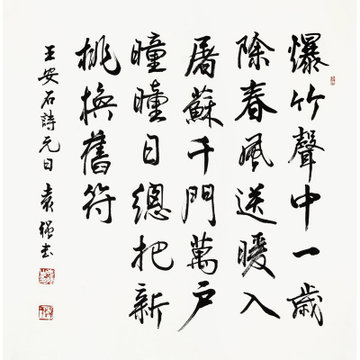 爆竹聲中一歲
除春風送暖入
屠蘇千門萬戶
曈曈日總把新
桃換舊符
王安石詩元日 袁強書